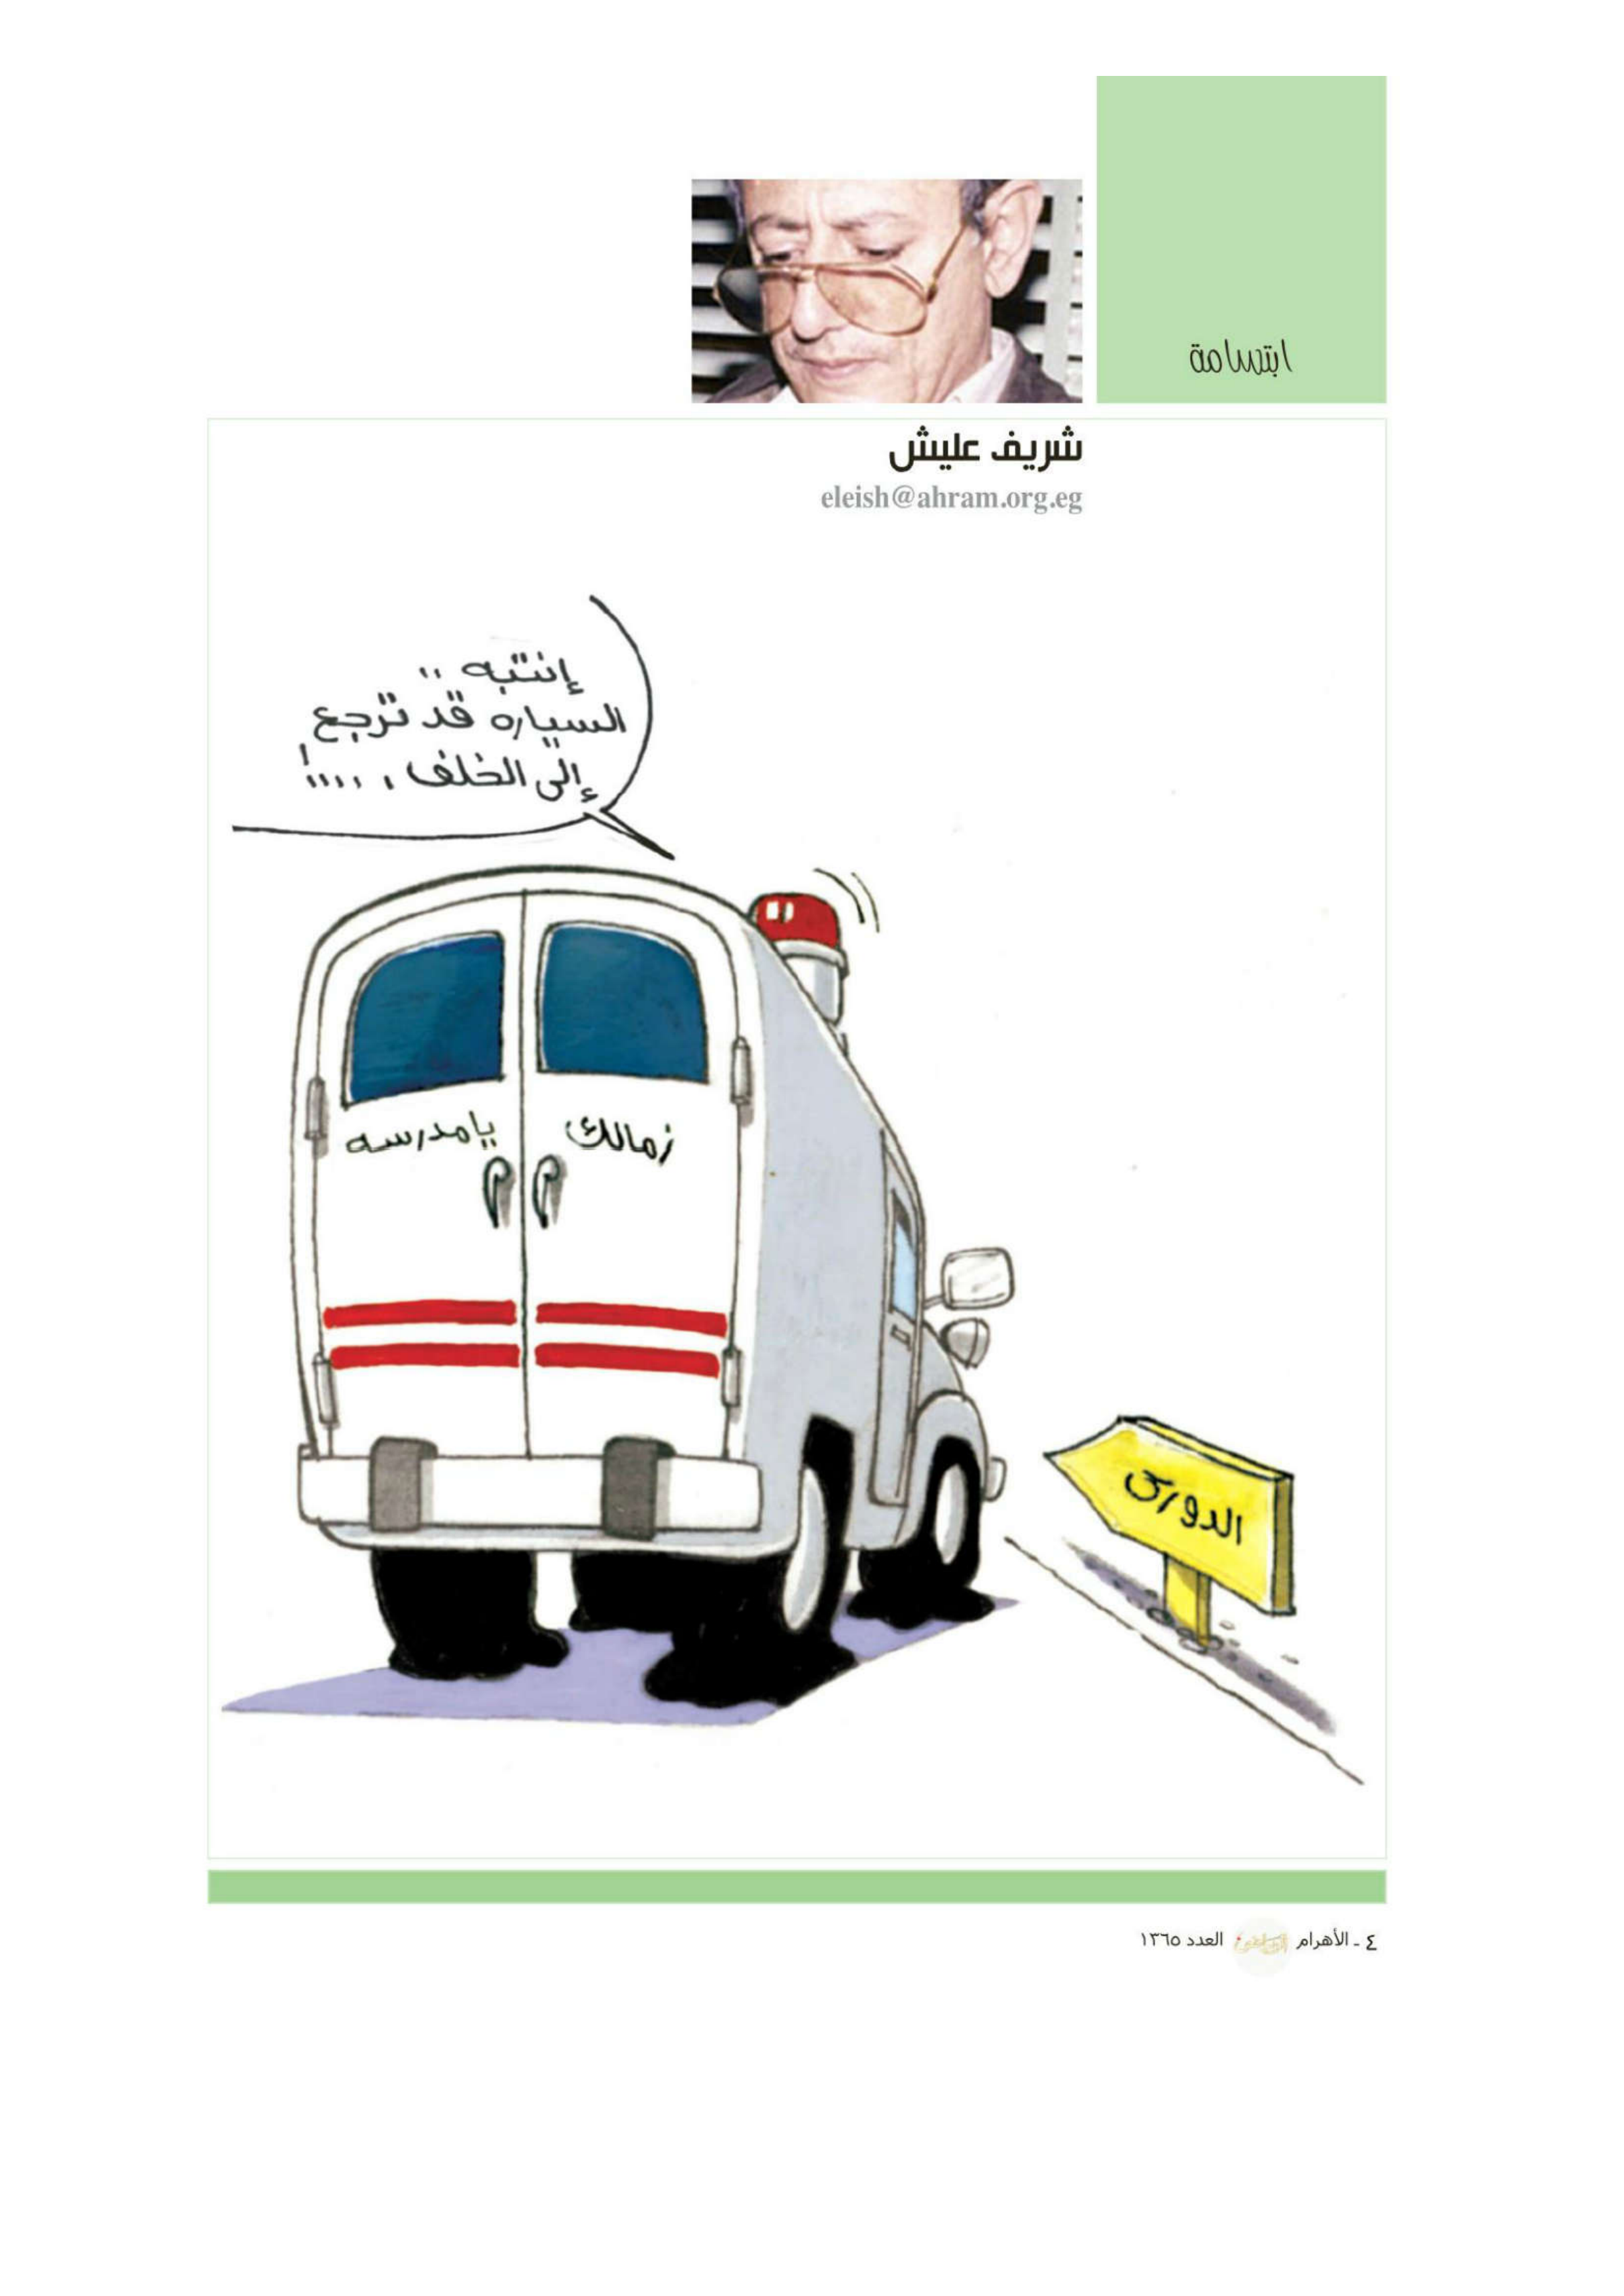 ابتسامة
شريف عليش
eleish@ahram.org.eg
إنتبه ..
السياره قد ترجع
إلى الخلف ، .....!
زمالك يامدرسه
الدورى
٤ ـ الأهرام الرياضى العدد ١٣٦٥